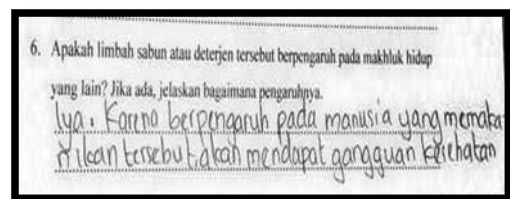 6. Apakah limbah sabun atau deterjen tersebut berpengaruh pada makhluk hidup
yang lain? Jika ada, jelaskan bagaimana pengaruhnya.
Iya. Karena berpengaruh pada manusia yang memaka
n ikan tersebut akan mendapat gangguan kesehatan